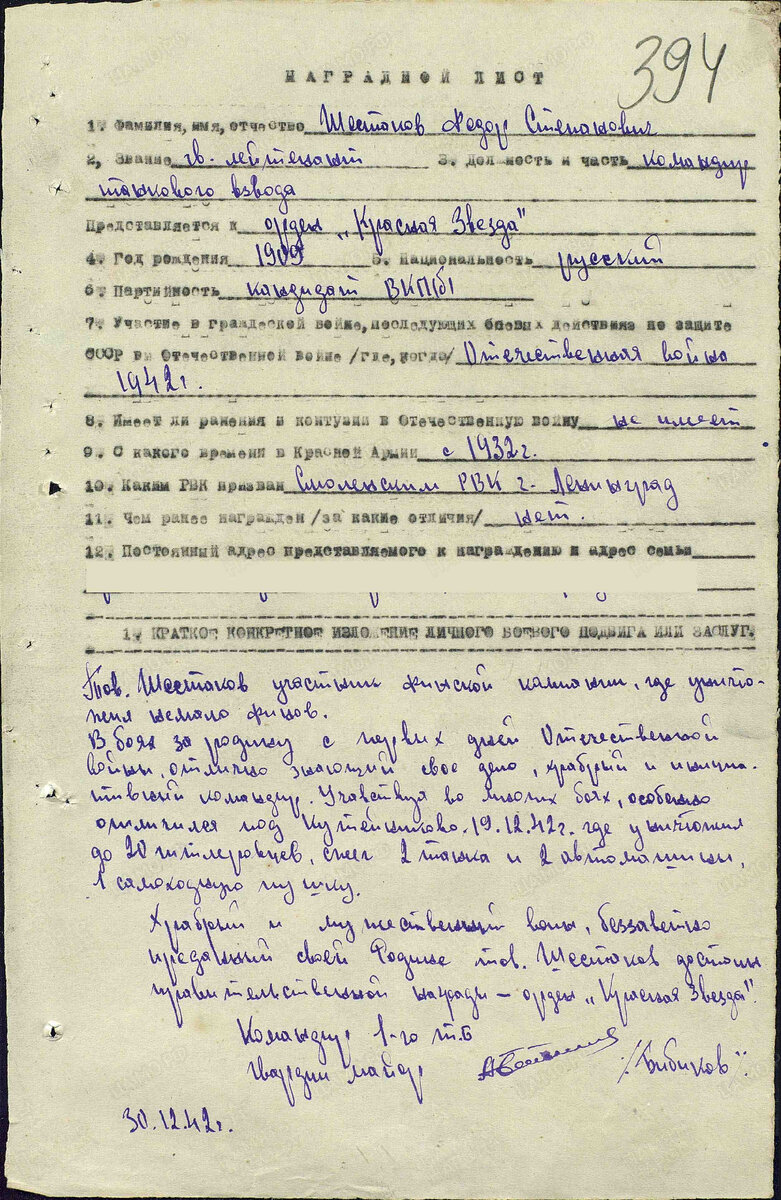 394
НАГРАДНОЙ ЛИСТ
1. Фамилия, имя, отчество Шестаков Федор Степанович
2, Звание гв. лейтенант 3. Должность и часть командир
танкового взвода
Представляется к орден „Красная Звезда"
4. Год рождения 1909 5. Национальность русский
6. Партийность кандидат ВКП(б)
7. Участие в гражданской войне, последующих боевых действиях по защите
СССР в Отечественной войне /где, когда/ Отечественная война
1942г.
8. Имеет ли ранения и контузии в Отечественную войну не имеет
9. С какого времени в Красной Армии с 1932г.
10. Каким РВК призван Смоленским РВК г. Ленинград
11. Чем ранее награжден /за какие отличия/ нет.
12. Постоянный адрес представляемого к награждению и адрес семьи
1. КРАТКОЕ КОНКРЕТНОЕ ИЗЛОЖЕНИЕ ЛИЧНОГО БОЕВОГО ПОДВИГА ИЛИ ЗАСЛУГ.
Тов. Шестаков участник финской кампании, где уничто-
жил немало финов.
В боях за родину с первых дней Отечественной
войны, отлично знающий свое дело, храбрый и иници-
ативный командир. Участвуя во многих боях, особенно
отличился под Кутейниково. 19.12.42г. где уничтожил
до 20 гитлеровцев, сжег 2 танка и 2 автомашины,
1 самоходную пушку.
Храбрый и мужественный воин, беззаветно
преданный своей Родине тов. Шестаков достоин
правительственной награды – орден „Красная Звезда".
Командир 1-го т.б
гвардии майор /Бибиков/.
30.12.42г.